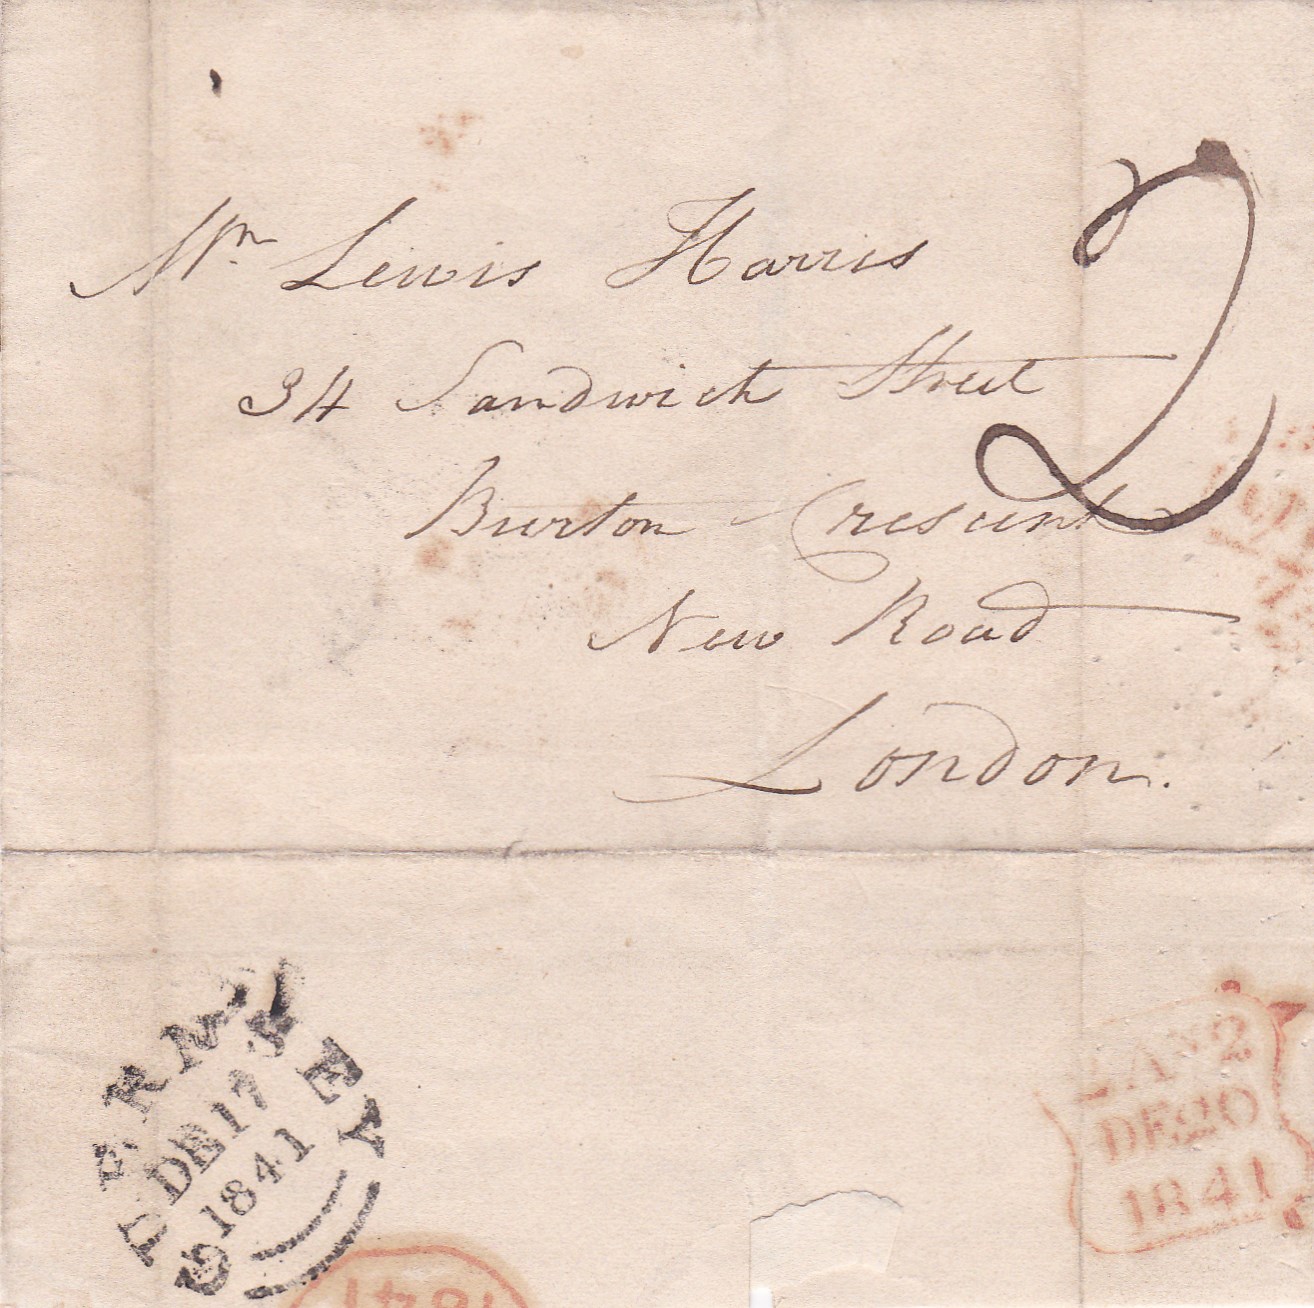 Mr. Lewis Harris
2
34 Sandwich Street
Burton Crescent
New Road
London.
GUERNSEY
DE 17
1841
2 AN 2
DE 20
1841
1841